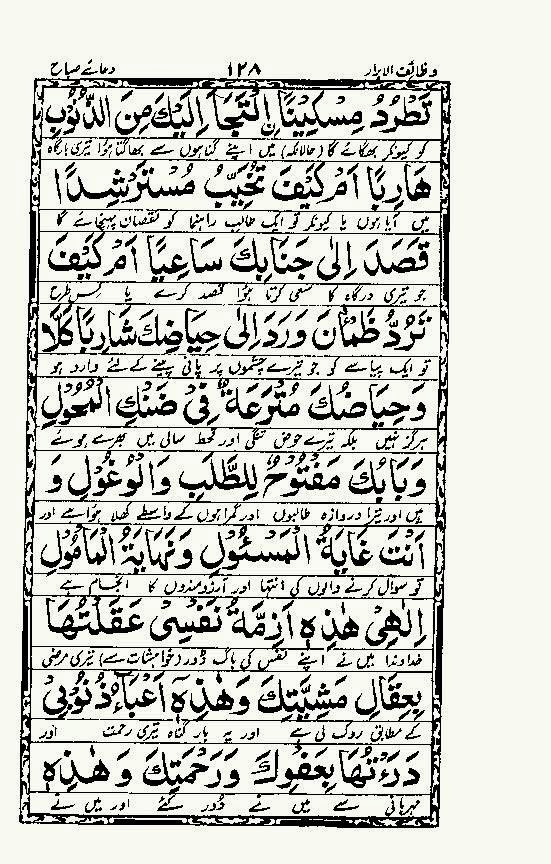 وظائف الابرار ۱۲۸ دعائے صباح
تَطْرُدُ مِسْكِيْنًا ِۨالْتَجَأَ اِلَيْكَ مِنَ الذُّنُوْبِ
کو کیونکر بھگائے گا (حالانکہ) میں اپنے گناہوں سے بھاگتا ہوا تیری بارگاہ
هَارِبًا اَمْ كَيْفَ تُخَيِّبُ مُسْتَرْشِدًا
میں آیا ہوں یا کیونکر تو ایک طالب راہنما کو نقصان پہنچائے گا
قَصَدَ اِلٰى جَنَابِكَ سَاعِيًا اَمْ كَيْفَ
جو تیری درگاہ کا سعی کرتا ہوا قصد کرے یا کس طرح
تَرُدُّ ظَمْاٰنَ وَرَدَ اِلٰى حِيَاضِكَ شَارِبًا كَلَّا
تو ایک پیاسے کو جو تیرے چشموں پر پانی پینے کے لئے وارد ہو
وَحِيَاضُكَ مُتْرَعَةٌ فِيْ ضَنْكِ الْمُحُوْلِ
ہرگز نہیں بلکہ تیرے حوض تنگی اور قحط سالی میں بھرے ہوئے
وَبَابُكَ مَفْتُوْحٌ لِلطَّلَبِ وَالْوُغُوْلِ وَ
ہیں اور تیرا دروازہ طالبوں اور گمراہوں کے واسطے کھلا ہوا ہے اور
اَنْتَ غَايَةُ الْمَسْئُوْلِ وَنِهَايَةُ الْمَأْمُوْلِ
تو سوال کرنے والوں کی انتہا اور آرزومندوں کا انجام ہے
اِلٰهِيْ هٰذِهٖ اَزِمَّةُ نَفْسِيْ عَقَلْتُهَا
خداوندا میں نے اپنے نفس کی باگ ڈور (خواہشات سے) تیری مرضی
بِعِقَالِ مَشِيَّتِكَ وَهٰذِهٖٓ اَعْبَآءُ ذُنُوْبِيْ
کے مطابق روک لی ہے اور یہ بار گناہ تیری رحمت اور
دَرَءْتُهَا بِعَفْوِكَ وَرَحْمَتِكَ وَهٰذِهٖ
مہربانی سے میں نے دُور کئے اور میں نے